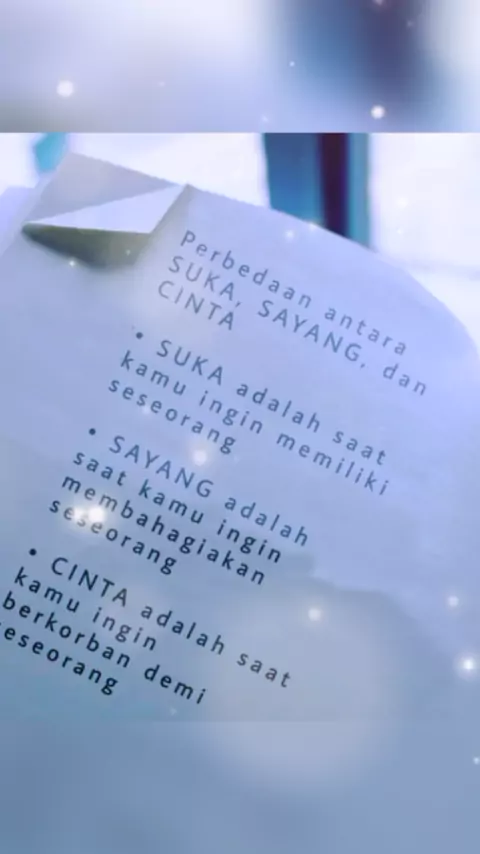 Perbedaan antara
SUKA, SAYANG, dan
CINTA
• SUKA adalah saat
kamu ingin memiliki
seseorang
• SAYANG adalah
saat kamu ingin
membahagiakan
seseorang
• CINTA adalah saat
kamu ingin
berkorban demi
seseorang